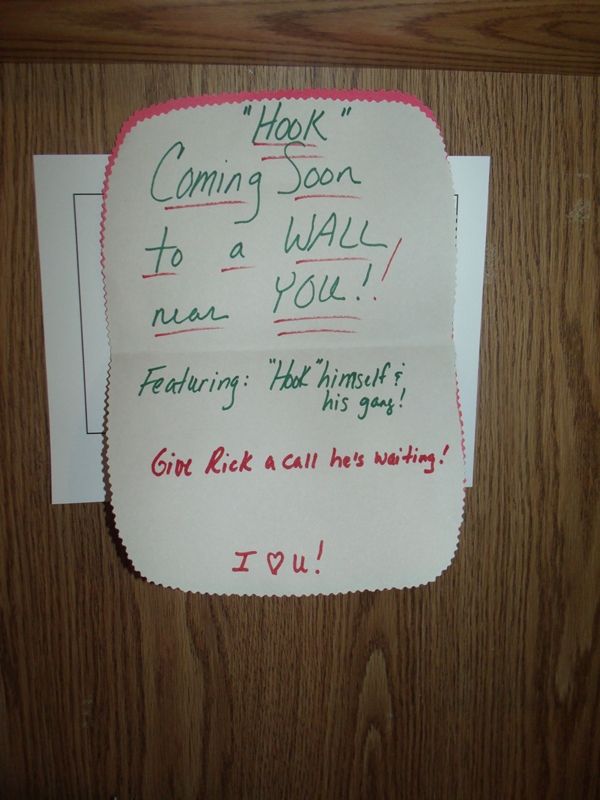 "Hook"
Coming Soon
to a WALL
near YOU!!
Featuring: "Hook" himself &
his gang!
Give Rick a call he's waiting!
I ♡ u!